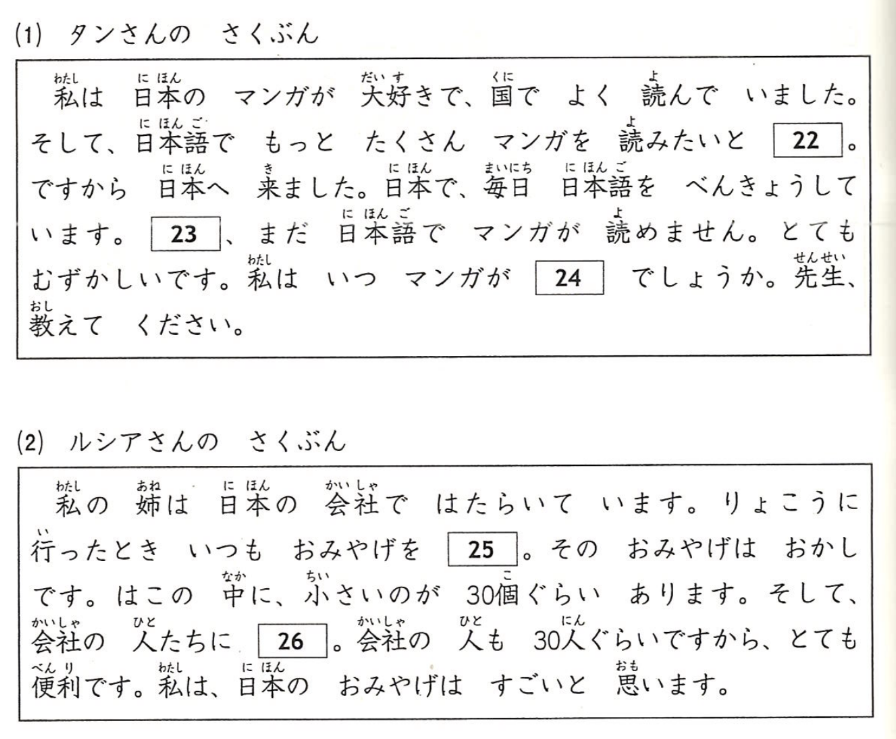 (1) タンさんの さくぶん
私は 日本の マンガが 大好きで、国で よく 読んで いました。
そして、日本語で もっと たくさん マンガを 読みたいと 22 。
ですから 日本へ 来ました。日本で、毎日 日本語を べんきょうして
います。 23 、まだ 日本語で マンガが 読めません。とても
むずかしいです。私は いつ マンガが 24 でしょうか。先生、
教えて ください。
(2) ルシアさんの さくぶん
私の 姉は 日本の 会社で はたらいて います。りょこうに
行ったとき いつも おみやげを 25 。その おみやげは おかし
です。はこの 中に、小さいのが 30個ぐらい あります。そして、
会社の 人たちに 26 。会社の 人も 30人ぐらいですから、とても
便利です。私は、日本の おみやげは すごいと 思います。